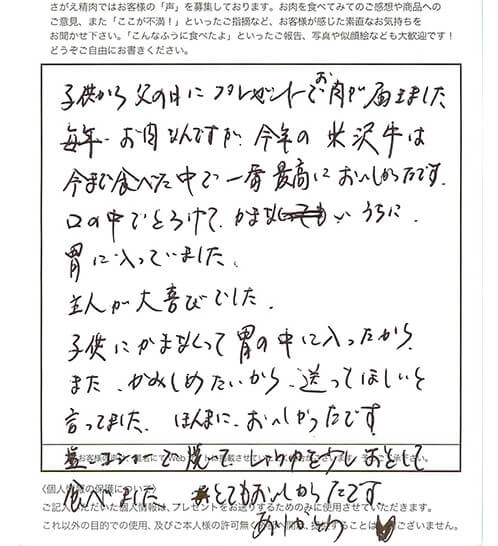 さがえ精肉ではお客様の「声」を募集しております。お肉を食べてみてのご感想や商品への
ご意見、また「ここが不満!」といったご指摘など、お客様が感じた素直なお気持ちを
お聞かせ下さい。「こんなふうに食べたよ」といったご報告、写真や似顔絵なども大歓迎です!
どうぞご自由にお書きください。
子供から父の日にプレゼントでお肉が届きました
毎年、お肉なんですが、今年の米沢牛は
今まで食べた中で一番最高においしかったです。
口の中でとろけて、かまなくてもいいうちに、
胃に入っていました、
主人が大喜びでした、
子供にかまなくって胃の中に入ったから、
また、かみしめたいから、送ってほしいと
言ってました、ほんまに、おいしかったです
塩、コショーで焼いて、レタスを少しおとして
食べました、とてもおいしかったです。
〈個人情報の保護について〉
ご記入いただいた個人情報は、プレゼントをお送りするためのみに使用させていただきます。
これ以外の目的での使用、及びご本人様の許可無く ございません。
ありがとう